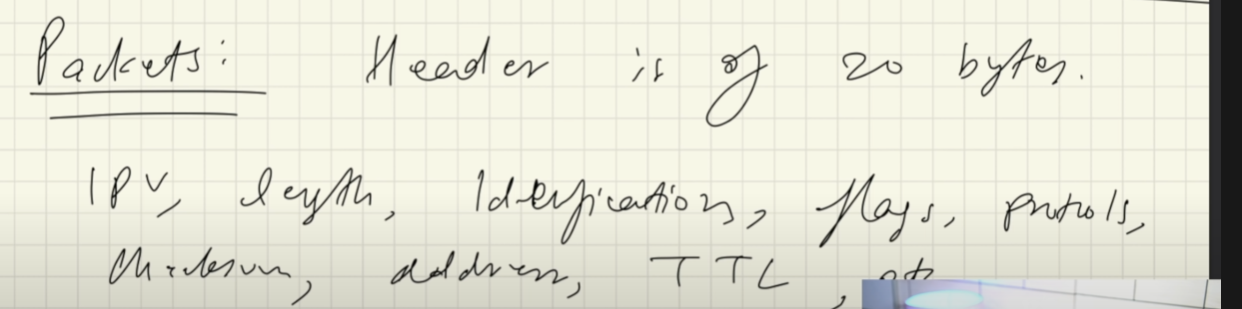 Packets: Header is of 20 bytes.
IPV, length, Identification, flags, protocols,
Checksum, address, TTL, etc